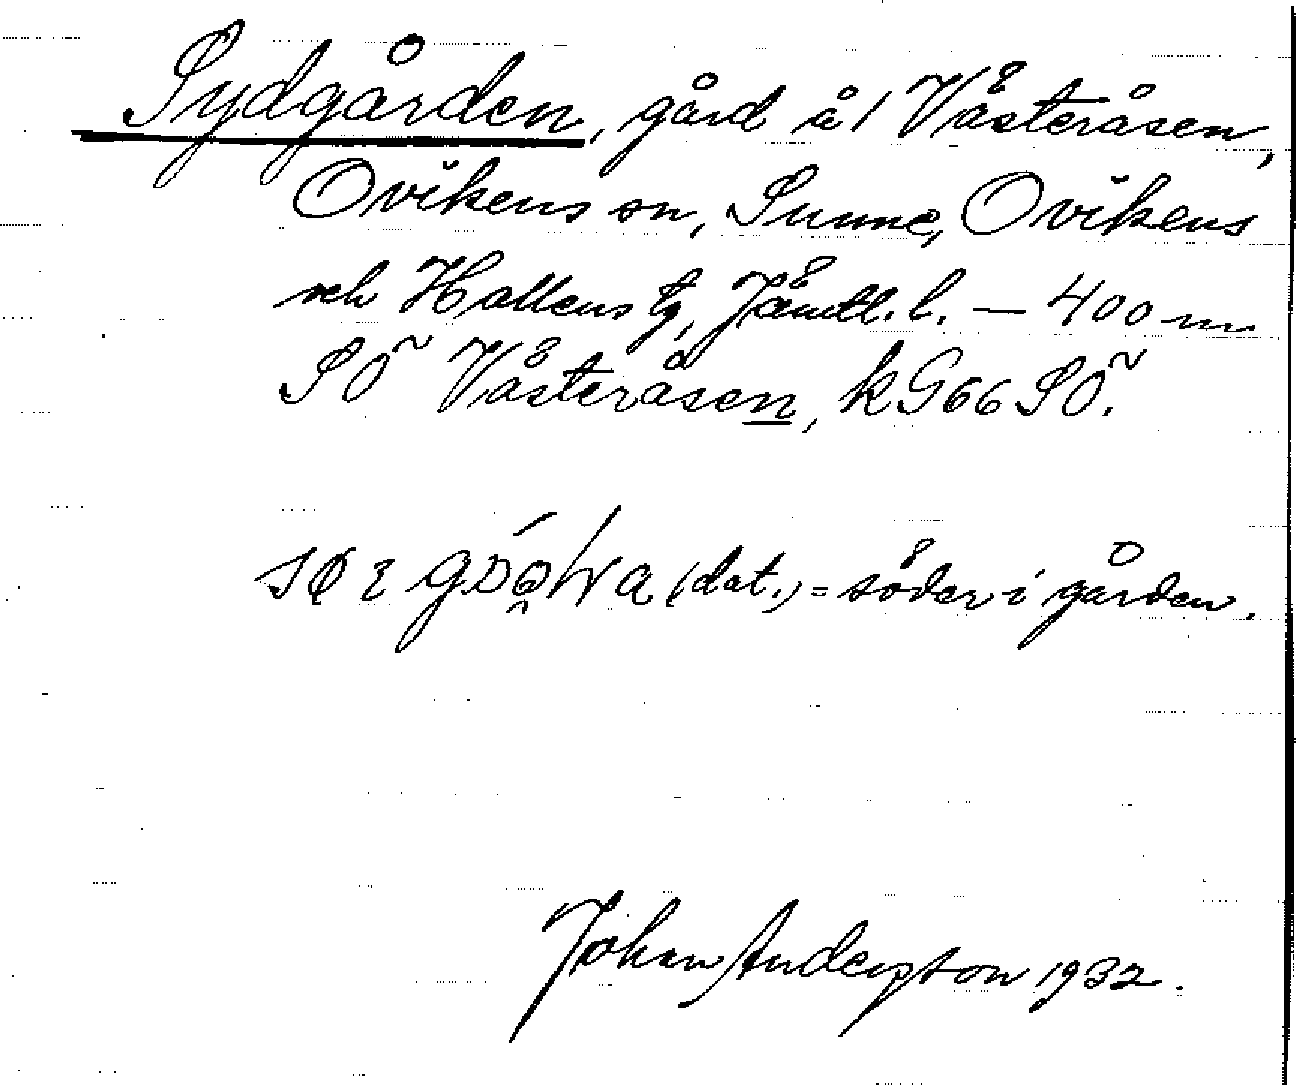 Sydgården, gård å 1 Västeråsen,
Ovikens sn, Sunne, Ovikens
och Hallens tg, Jämtl. l. — 400 m
SÖ Västeråsen, kG66 SÖ.
(dat.) = söder i gården.
Johan Anderzson 1932.